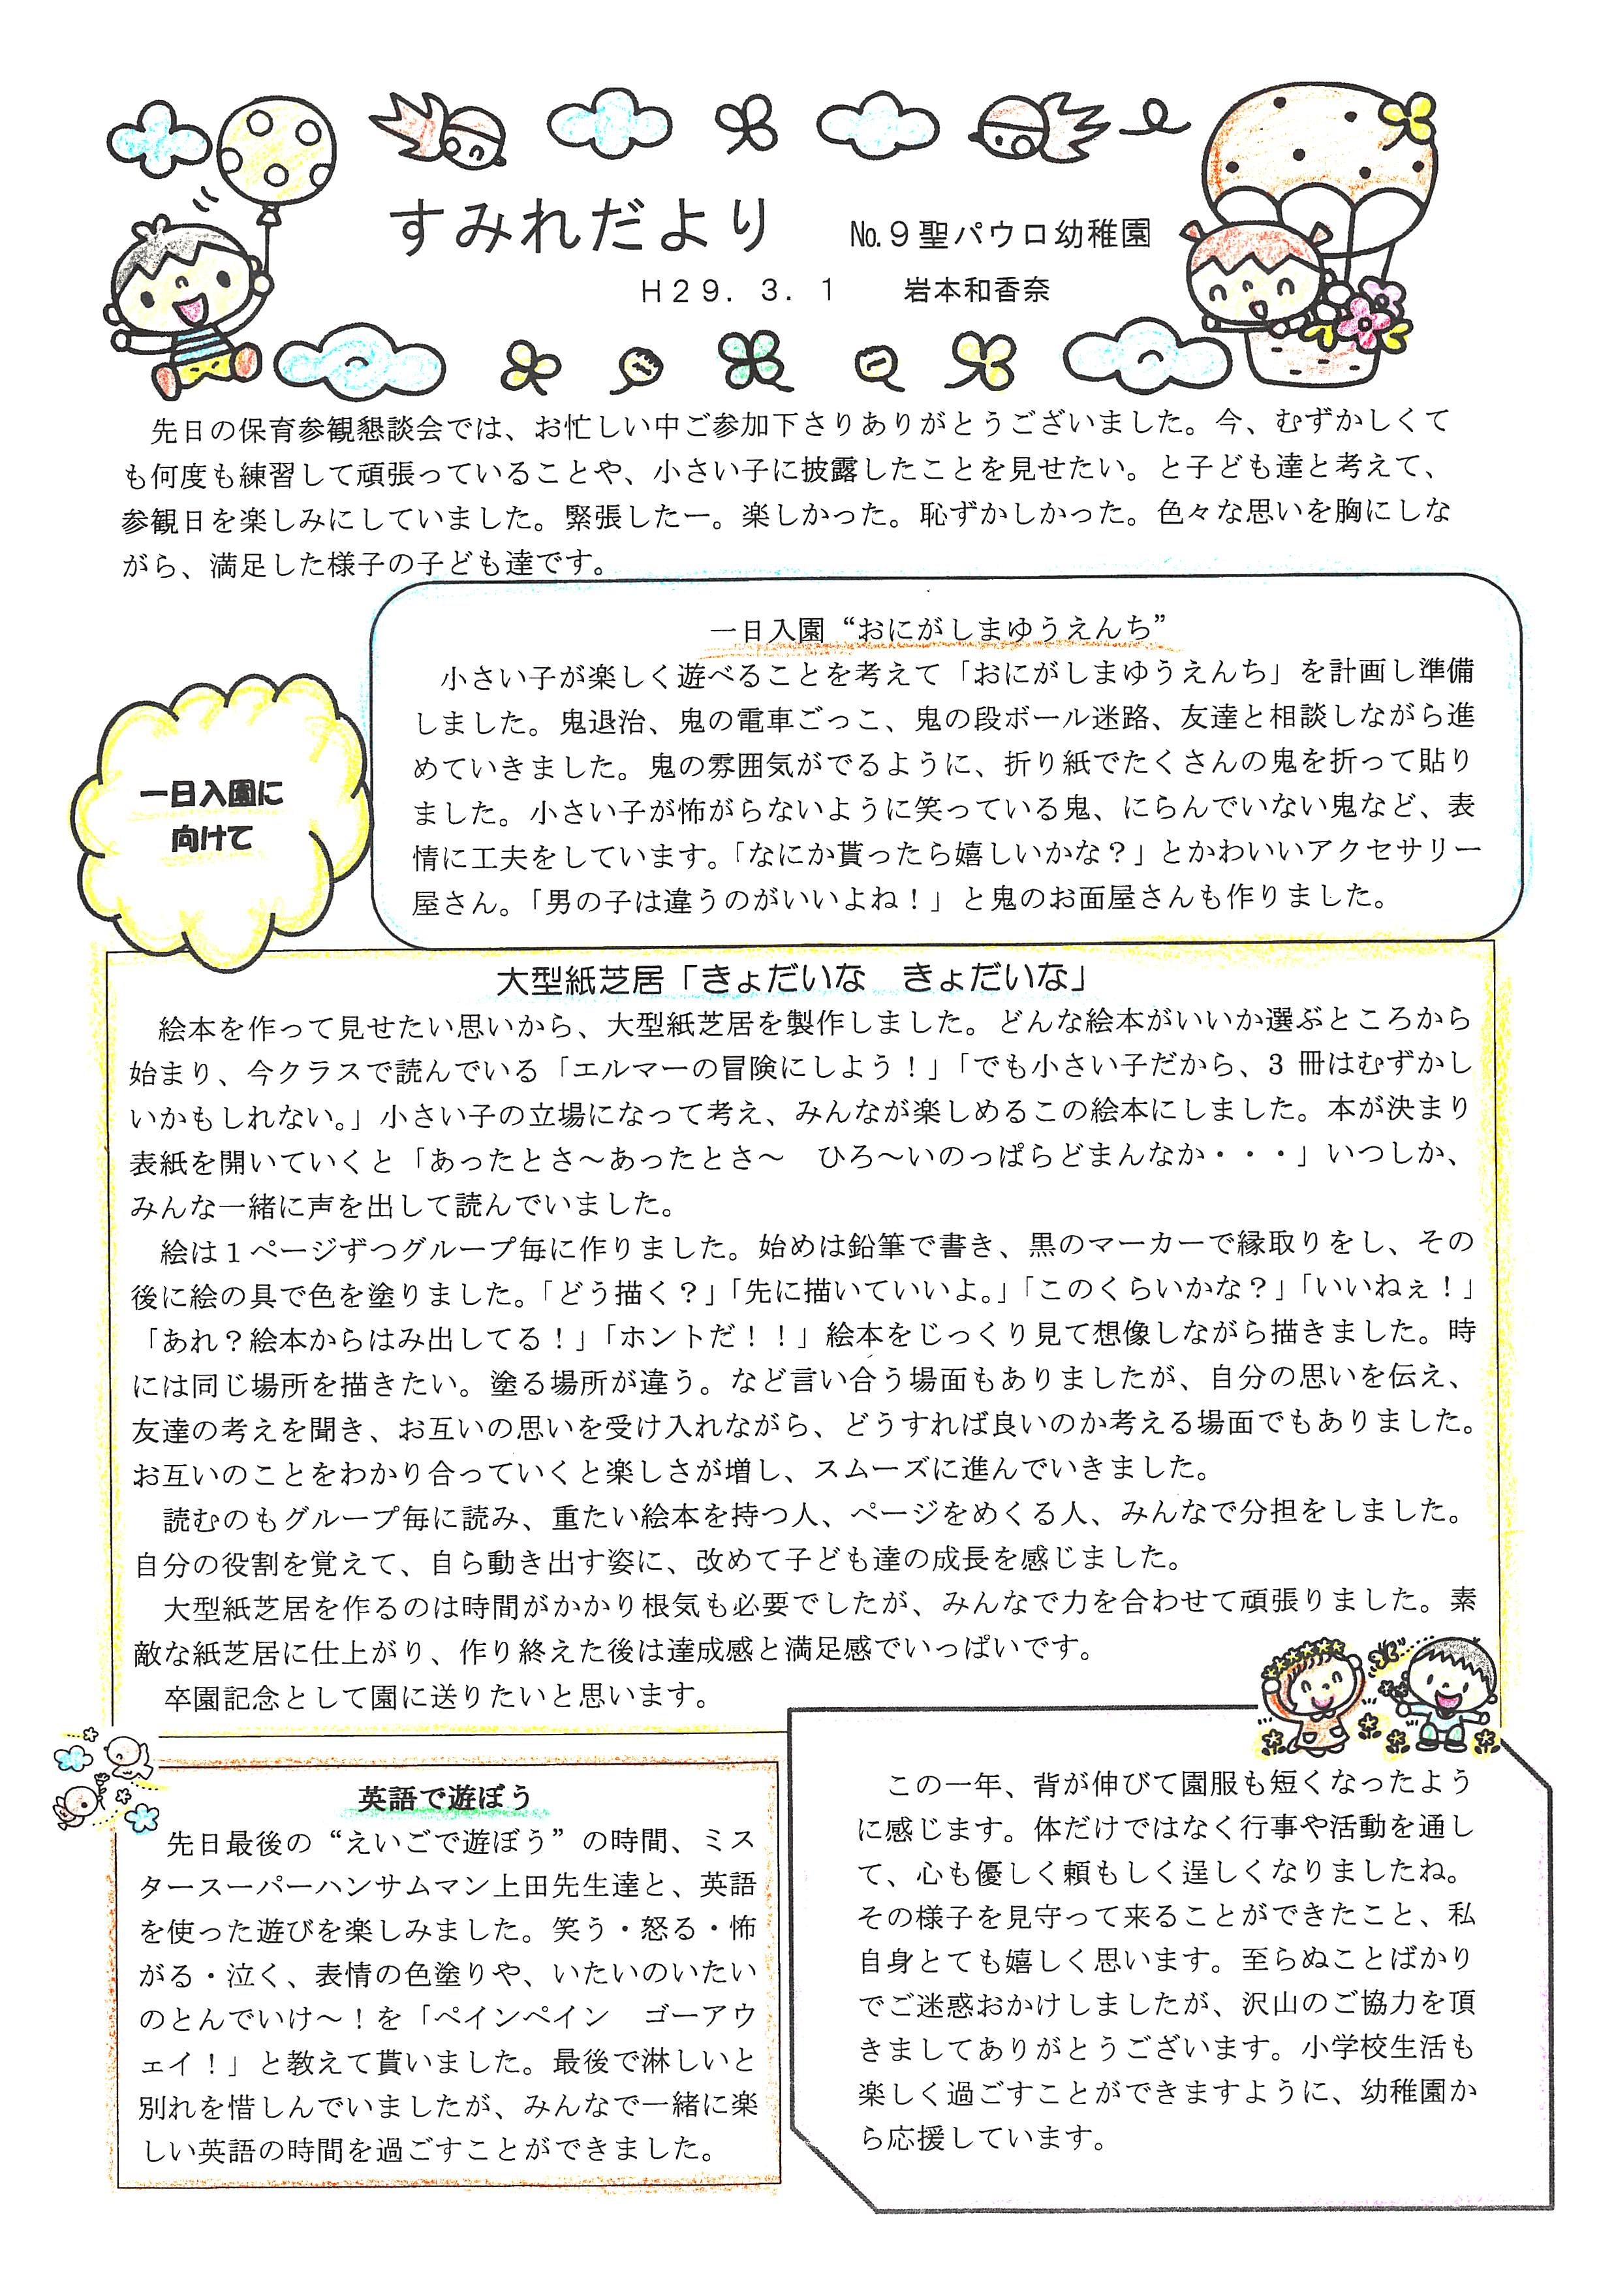 すみれだより　№９聖パウロ幼稚園
Ｈ２９．３．１　　岩本和香奈
先日の保育参観懇談会では、お忙しい中ご参加下さりありがとうございました。今、むずかしくて
も何度も練習して頑張っていることや、小さい子に披露したことを見せたい。と子ども達と考えて、
参観日を楽しみにしていました。緊張したー。楽しかった。恥ずかしかった。色々な思いを胸にしな
がら、満足した様子の子ども達です。
一日入園に
向けて
一日入園“おにがしまゆうえんち”
小さい子が楽しく遊べることを考えて「おにがしまゆうえんち」を計画し準備
しました。鬼退治、鬼の電車ごっこ、鬼の段ボール迷路、友達と相談しながら進
めていきました。鬼の雰囲気がでるように、折り紙でたくさんの鬼を折って貼り
ました。小さい子が怖がらないように笑っている鬼、にらんでいない鬼など、表
情に工夫をしています。「なにか貰ったら嬉しいかな？」とかわいいアクセサリー
屋さん。「男の子は違うのがいいよね！」と鬼のお面屋さんも作りました。
大型紙芝居「きょだいな　きょだいな」
絵本を作って見せたい思いから、大型紙芝居を製作しました。どんな絵本がいいか選ぶところから
始まり、今クラスで読んでいる「エルマーの冒険にしよう！」「でも小さい子だから、3 冊はむずかし
いかもしれない。」小さい子の立場になって考え、みんなが楽しめるこの絵本にしました。本が決まり
表紙を開いていくと「あったとさ～あったとさ～　ひろ～いのっぱらどまんなか・・・」いつしか、
みんな一緒に声を出して読んでいました。
絵は１ページずつグループ毎に作りました。始めは鉛筆で書き、黒のマーカーで縁取りをし、その
後に絵の具で色を塗りました。「どう描く？」「先に描いていいよ。」「このくらいかな？」「いいねぇ！」
「あれ？絵本からはみ出してる！」「ホントだ！！」絵本をじっくり見て想像しながら描きました。時
には同じ場所を描きたい。塗る場所が違う。など言い合う場面もありましたが、自分の思いを伝え、
友達の考えを聞き、お互いの思いを受け入れながら、どうすれば良いのか考える場面でもありました。
お互いのことをわかり合っていくと楽しさが増し、スムーズに進んでいきました。
読むのもグループ毎に読み、重たい絵本を持つ人、ページをめくる人、みんなで分担をしました。
自分の役割を覚えて、自ら動き出す姿に、改めて子ども達の成長を感じました。
大型紙芝居を作るのは時間がかかり根気も必要でしたが、みんなで力を合わせて頑張りました。素
敵な紙芝居に仕上がり、作り終えた後は達成感と満足感でいっぱいです。
卒園記念として園に送りたいと思います。
英語で遊ぼう
先日最後の“えいごで遊ぼう”の時間、ミス
タースーパーハンサムマン上田先生達と、英語
を使った遊びを楽しみました。笑う・怒る・怖
がる・泣く、表情の色塗りや、いたいのいたい
のとんでいけ～！を「ペインペイン　ゴーアウ
ェイ！」と教えて貰いました。最後で淋しいと
別れを惜しんでいましたが、みんなで一緒に楽
しい英語の時間を過ごすことができました。
この一年、背が伸びて園服も短くなったよう
に感じます。体だけではなく行事や活動を通し
て、心も優しく頼もしく逞しくなりましたね。
その様子を見守って来ることができたこと、私
自身とても嬉しく思います。至らぬことばかり
でご迷惑おかけしましたが、沢山のご協力を頂
きましてありがとうございます。小学校生活も
楽しく過ごすことができますように、幼稚園か
ら応援しています。